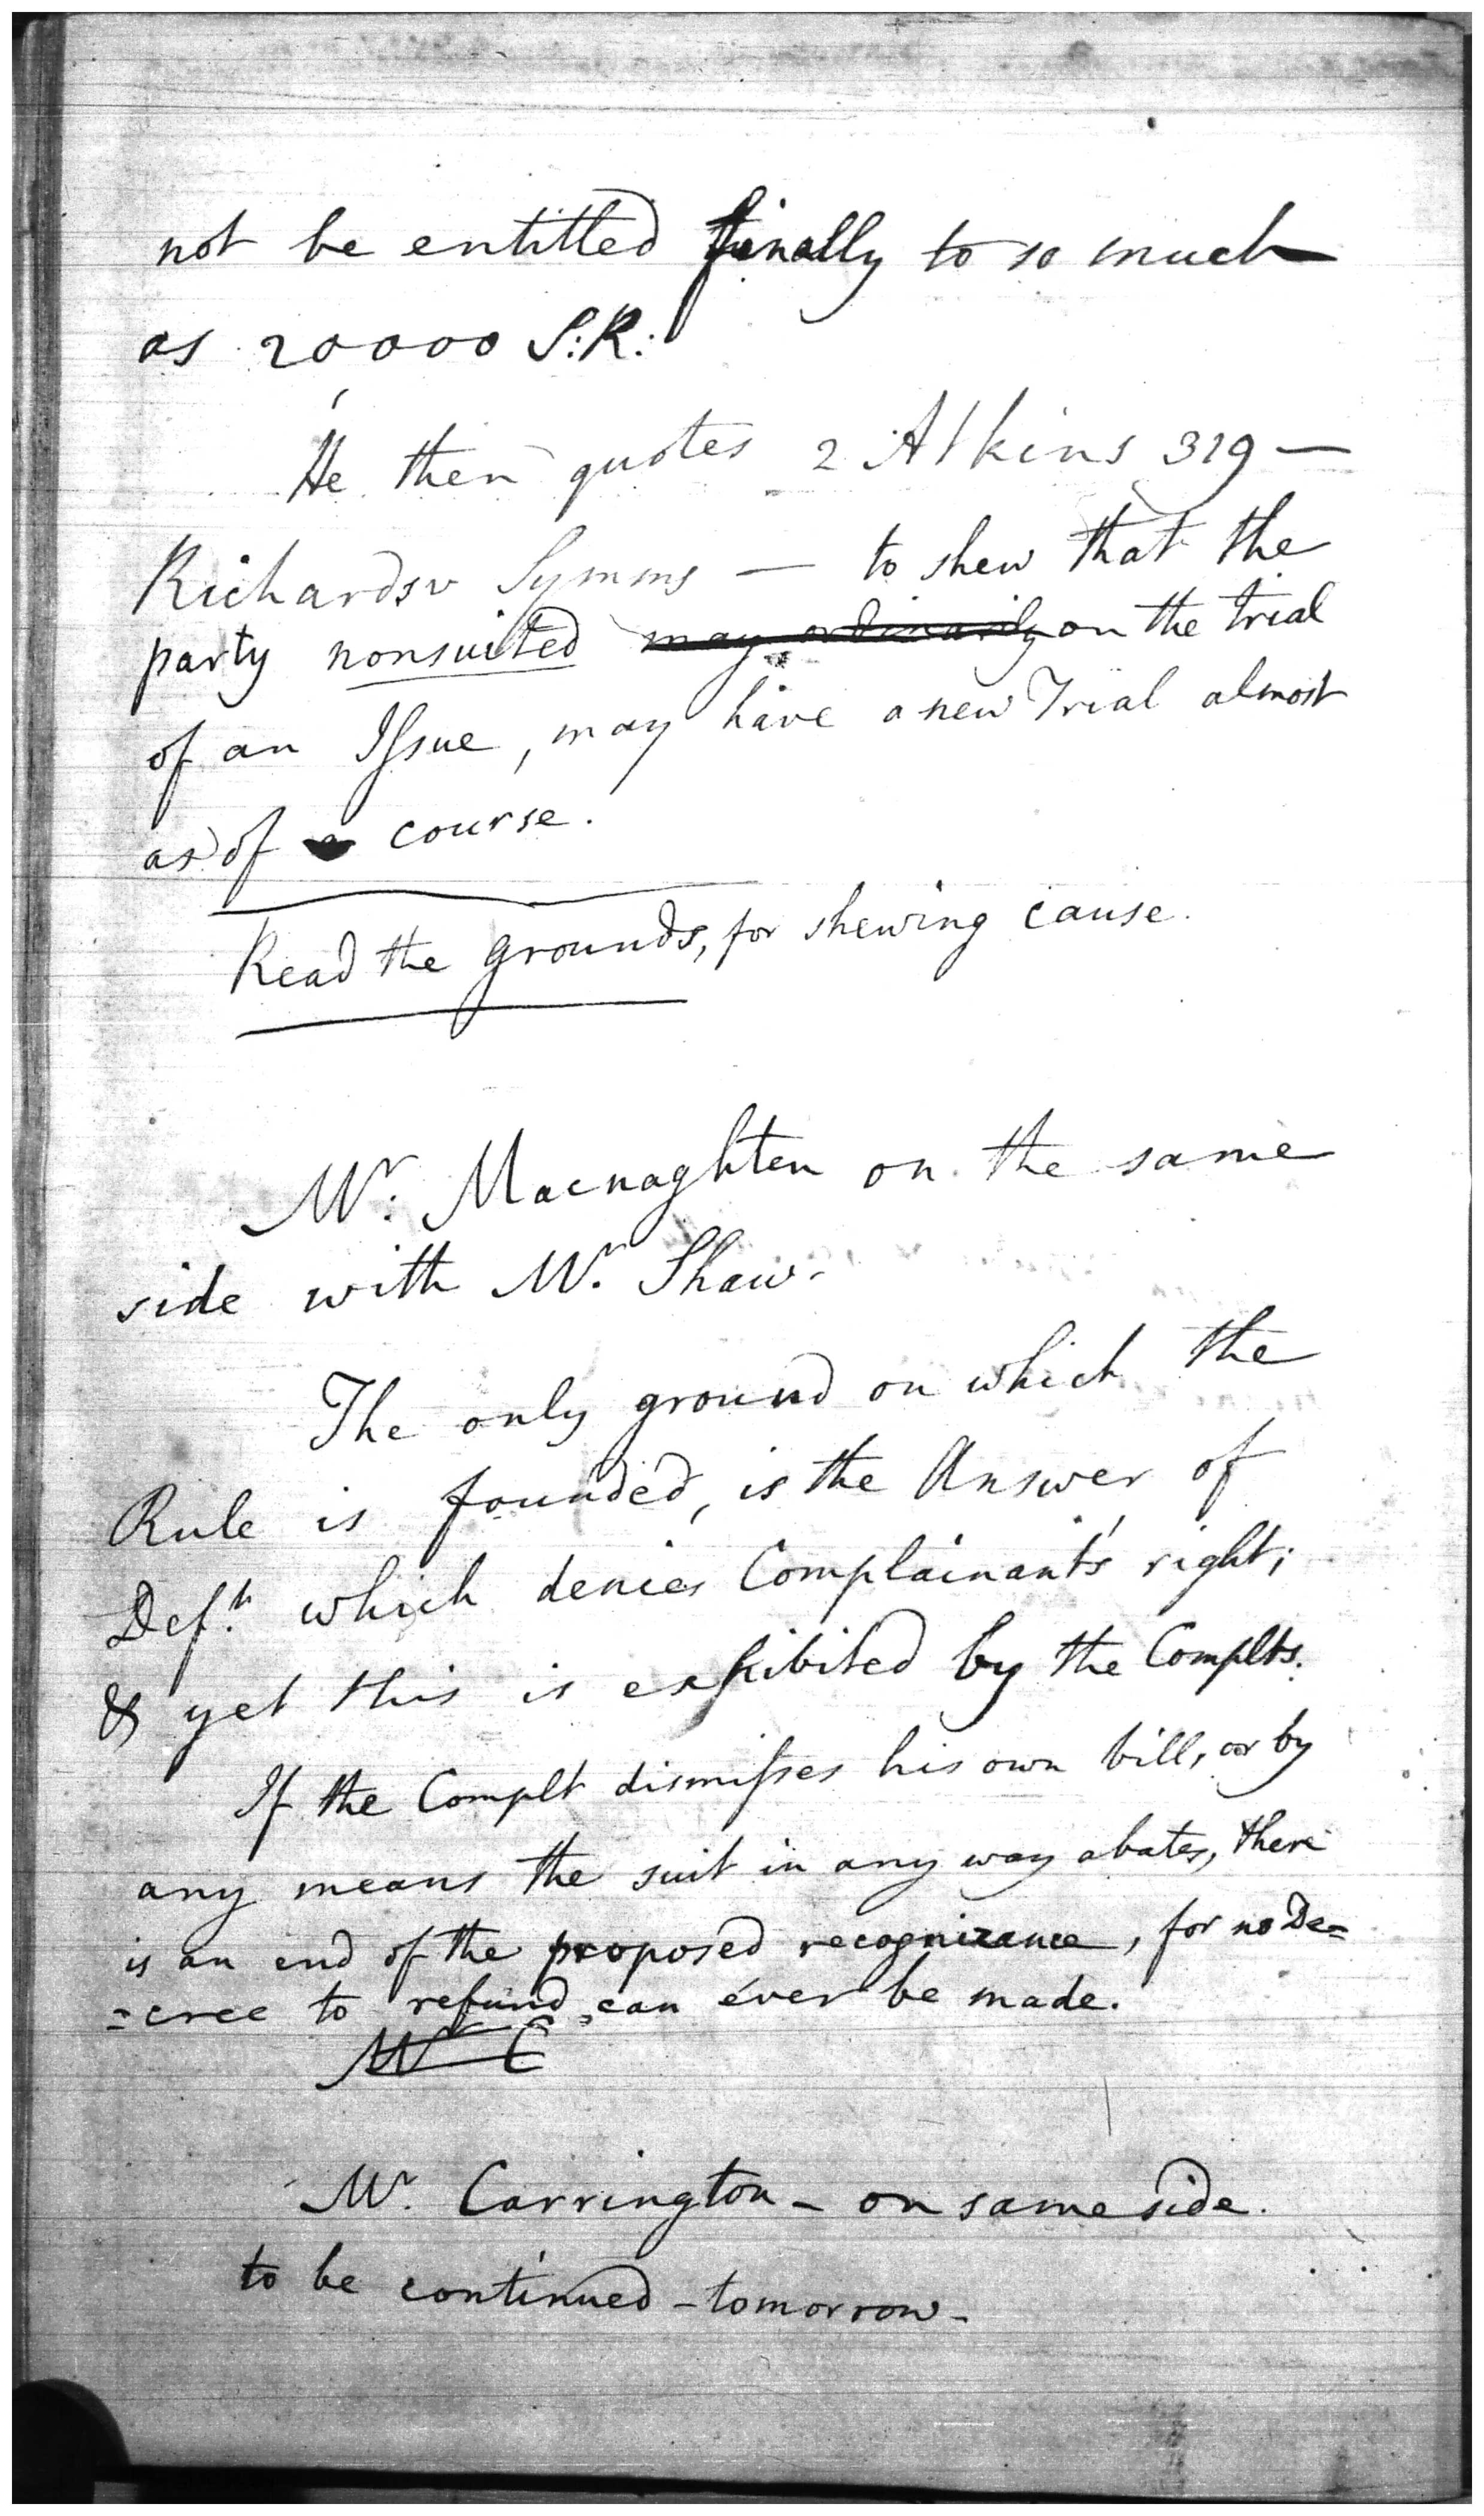 not be entitled finally to so much
as 20000 S:R:
He then quotes 2 Atkins 319 —
Richards v Symms — to shew that the
party nonsuited may ordinarily on the trial
of an Issue, may have a new Trial almost
as of a course.
Read the grounds, for shewing cause.
Mr. Macnaghten on the same
side with Mr. Shaw.
The only ground on which the
Rule is founded, is the Answer of
Deft. which denies Complainant's right;
& yet this is exhibited by the Complts.
If the Complt dismisses his own bill, or by
any means the suit in any way abates, there
is an end of the proposed recognizance, for no De=
=cree to refund, can ever be made.
Mr C
Mr. Carrington - on same side.
to be continued - tomorrow -